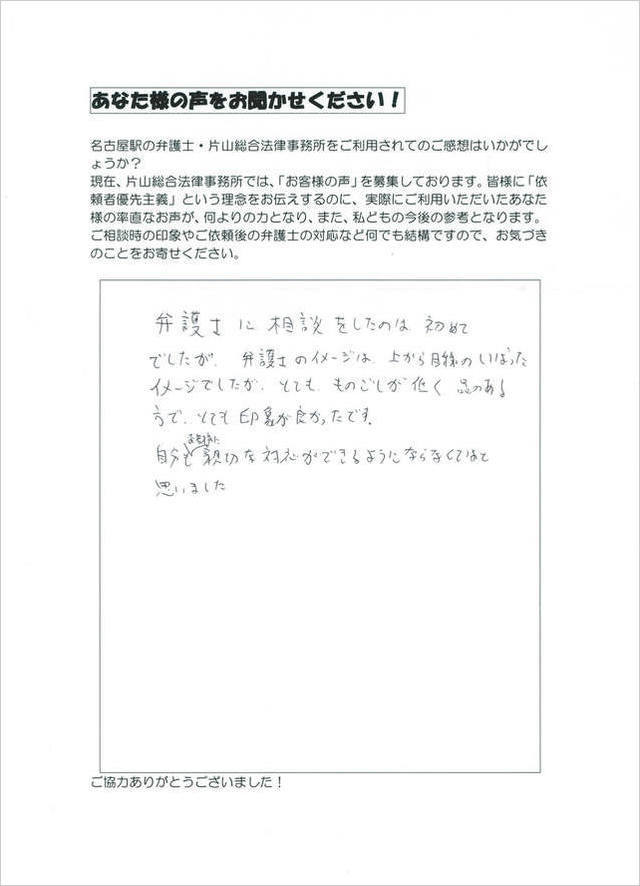 あなた様の声をお聞かせください！
名古屋駅の弁護士・片山総合法律事務所をご利用されてのご感想はいかがでし
ょうか？
現在、片山総合法律事務所では、「お客様の声」を募集しております。皆様に「依
頼者優先主義」という理念をお伝えするのに、実際にご利用いただいたあなた
様の率直なお声が、何よりの力となり、また、私どもの今後の参考となります。
ご相談時の印象やご依頼後の弁護士の対応など何でも結構ですので、お気づき
のことをお寄せください。
弁護士に相談をしたのは初めて
でしたが、弁護士のイメージは、上から目線のいばった
イメージでしたが、とても、ものごしが低く品のある
方で、とても印象が良かったです。
自分も親切な対応ができるようにならなくてはと
思いました
ご協力ありがとうございました！